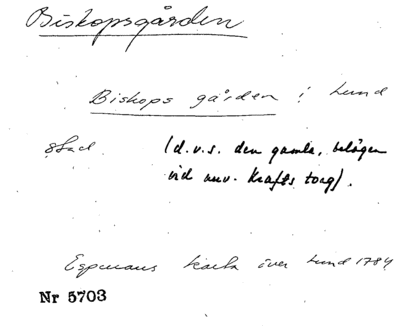 Biskopsgården
Biskops gården i Lund
stad (d.v.s. den gamla, belägen
vid nuv. Krafts torg).
Espmans karta över Lund 1784
Nr 5703